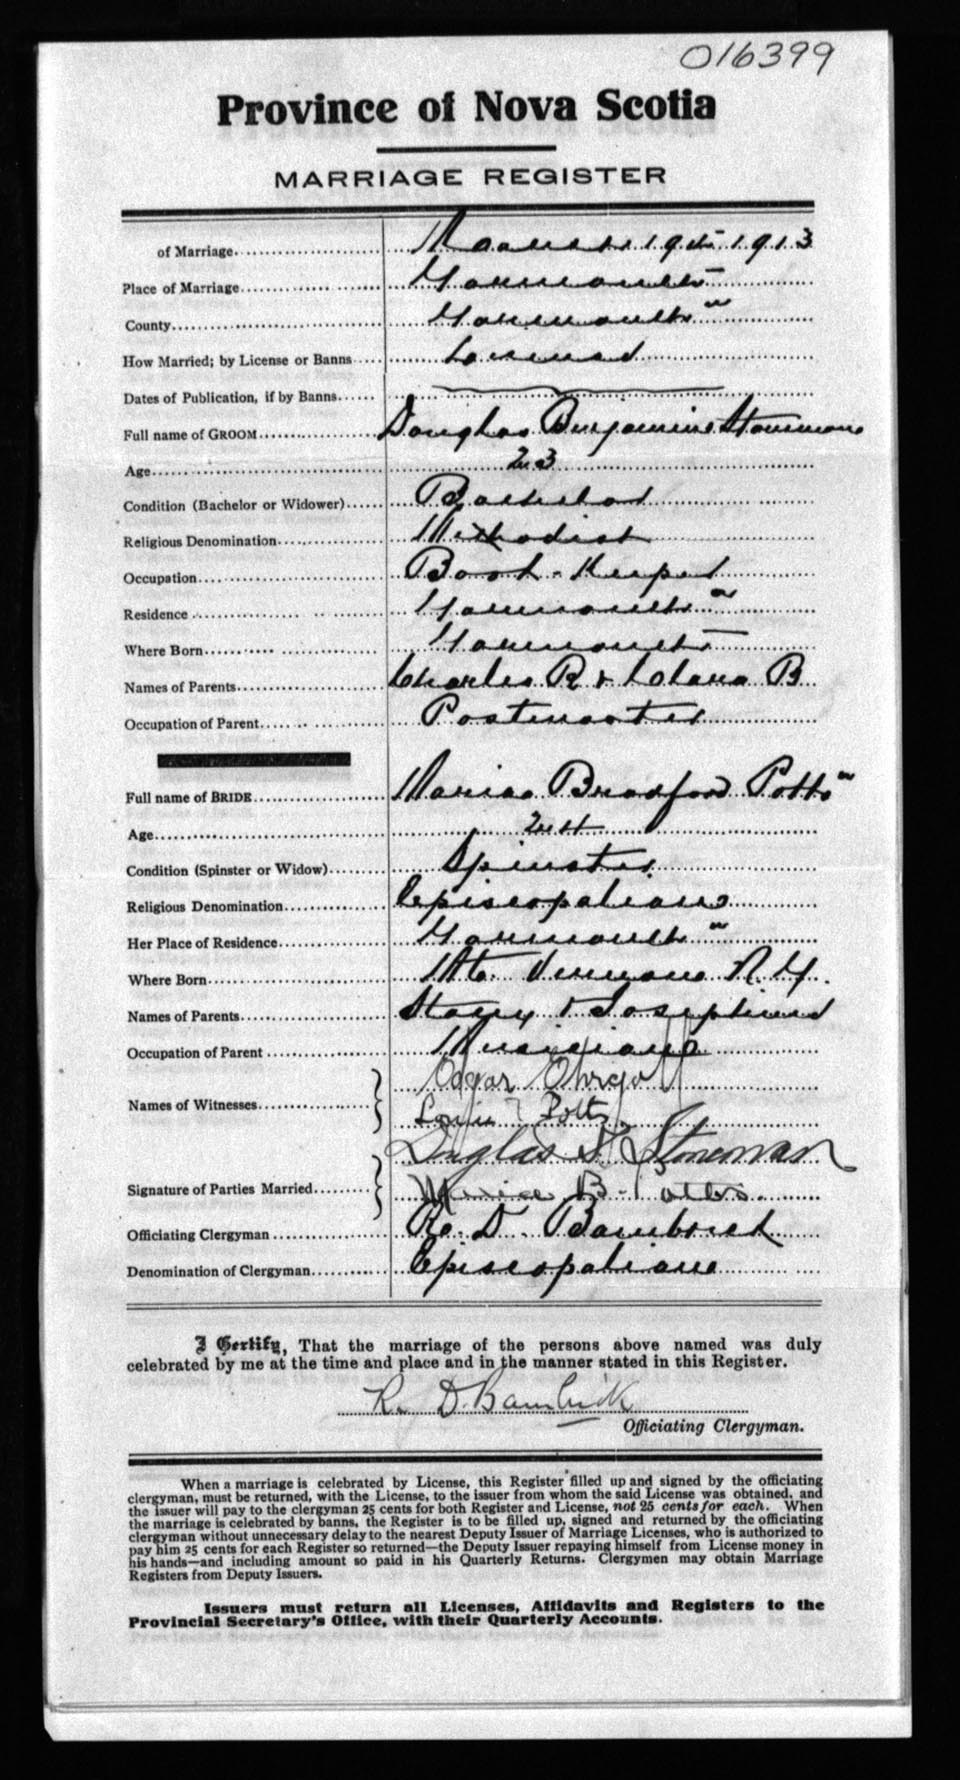 016399
Province of Nova Scotia
MARRIAGE REGISTER
of Marriage 19th 1913
Place of Marriage Yarmouth
County Yarmouth
How Married; by License or Banns License
Dates of Publication, if by Banns
Full name of GROOM Douglas Benjamin Stoneman
Age 23
Condition (Bachelor or Widower) Bachelor
Religious Denomination Methodist
Occupation Book-Keeper
Residence Yarmouth
Where Born Yarmouth
Names of Parents Charles R & Clara B
Occupation of Parent Postmaster
Full name of BRIDE Bradford Potts
Age 24
Condition (Spinster or Widow) Spinster
Religious Denomination Episcopalian
Her Place of Residence Yarmouth
Where Born Mt. Vernon N.Y.
Names of Parents & Josephine
Occupation of Parent Musician
Edgar
Names of Witnesses
Potts
Douglas Stoneman
Signature of Parties Married
B. Potts
Officiating Clergyman Re. D. Bambrick
Denomination of Clergyman Episcopalian
I Certify, That the marriage of the persons above named was duly
celebrated by me at the time and place and in the manner stated in this Register.
R. D. Bambrick
Officiating Clergyman.
When a marriage is celebrated by License, this Register filled up and signed by the officiating
clergyman, must be returned, with the License, to the issuer from whom the said License was obtained, and
the issuer will pay to the clergyman 25 cents for both Register and License, not 25 cents for each. When
the marriage is celebrated by banns, the Register is to be filled up, signed and returned by the officiating
clergyman without unnecessary delay to the nearest Deputy Issuer of Marriage Licenses, who is authorized to
pay him 25 cents for each Register so returned—the Deputy Issuer repaying himself from License money in
his hands—and including amount so paid in his Quarterly Returns. Clergymen may obtain Marriage
Registers from Deputy Issuers.
Issuers must return all Licenses, Affidavits and Registers to the
Provincial Secretary's Office, with their Quarterly Accounts.